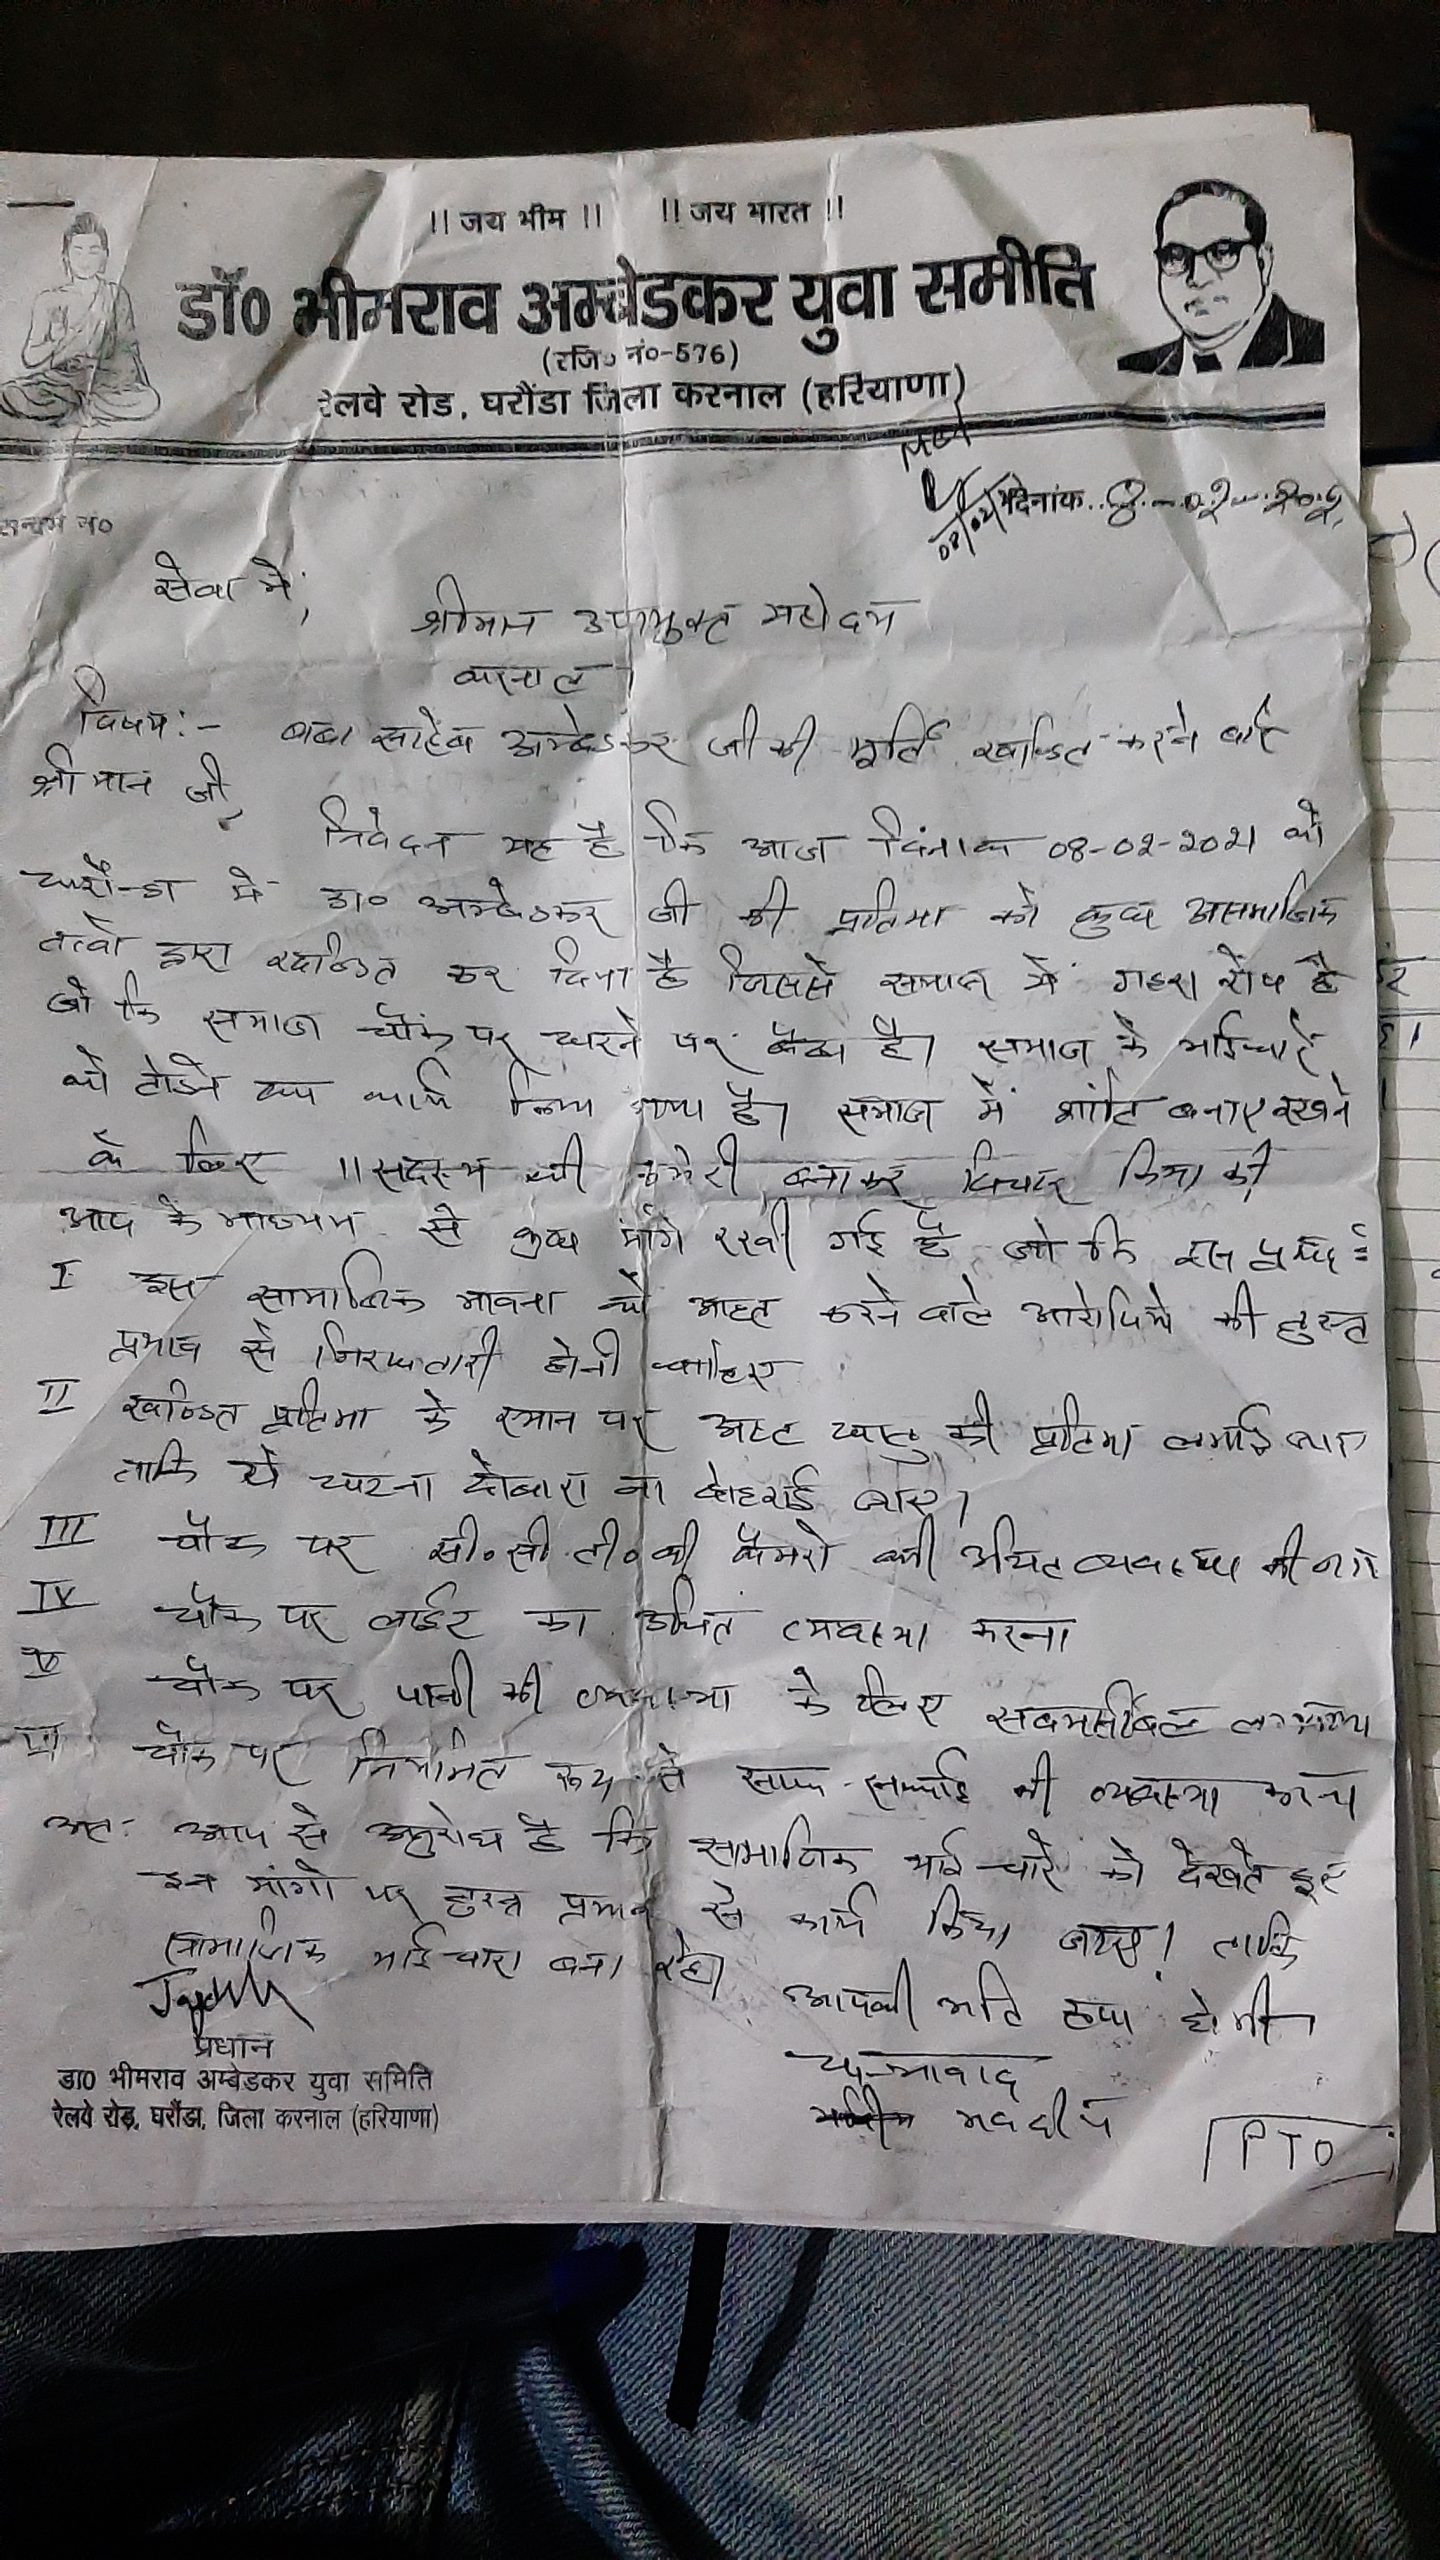 !! जय भीम !! !! जय भारत !!
डॉ0 भीमराव अम्बेडकर युवा समीति
(रजि० नं०-576)
रेलवे रोड, घरौंडा जिला करनाल (हरियाणा)
दिनांक..8-02-2021
08/02
सेवा में,
श्रीमान उपायुक्त महोदय
करनाल।
विषय:- बाबा साहेब अम्बेडकर जी की मूर्ति खण्डित करने बारे
श्री मान जी,
निवेदन यह है कि आज दिंनाक 08-02-2021 को
घरौन्डा में डा० अम्बेडकर जी की प्रतिमा को कुछ असमाजिक
तत्वो द्वारा खण्डित कर दिया है जिससे समाज मे गहरा रोष है
जो कि समाज चौंक पर धरने पर बैठा है। समाज के भाईचारे
को तोडने का कार्य किया गया है। समाज में शांति बनाए रखने
के लिए 11 सदस्य की कमेटी बनाकर विचार किया की
आप के माध्यम से कुछ मांगे रखी गई है जो कि इस प्रकार है
I इस सामाजिक भावना को आहत करने वाले आरोपियो की तुरन्त
प्रभाव से गिरफतारी होनी चाहिए
II खण्डित प्रतिमा के स्थान पर अष्ट धातु की प्रतिमा लगाई जाए
ताकि ये घटना दोबारा ना दोहराई जाए।
III चौंक पर सी.सी.टी.वी कैमरो की उचित व्यवस्था की जाये
IV चौंक पर लाईट का उचित व्यवस्था करना
V चौंक पर पानी की व्यवस्था के लिए सबमर्सीबल
VI चौंक पर नियमित रूप से साफ-सफाई की व्यवस्था करना
अत: आप से अनुरोध है कि सामाजिक भाई चारे को देखते हुए
इन मांगो पर तुरन्त प्रभाव से कार्य किया जाए। ताकि
सामाजिक भाईचारा बना रहे।
आपकी अति कृपा होगी।
प्रधान
धन्यावाद
डा0 भीमराव अम्बेडकर युवा समिति
रेलवे रोड, घरौंडा, जिला करनाल (हरियाणा)
PTO